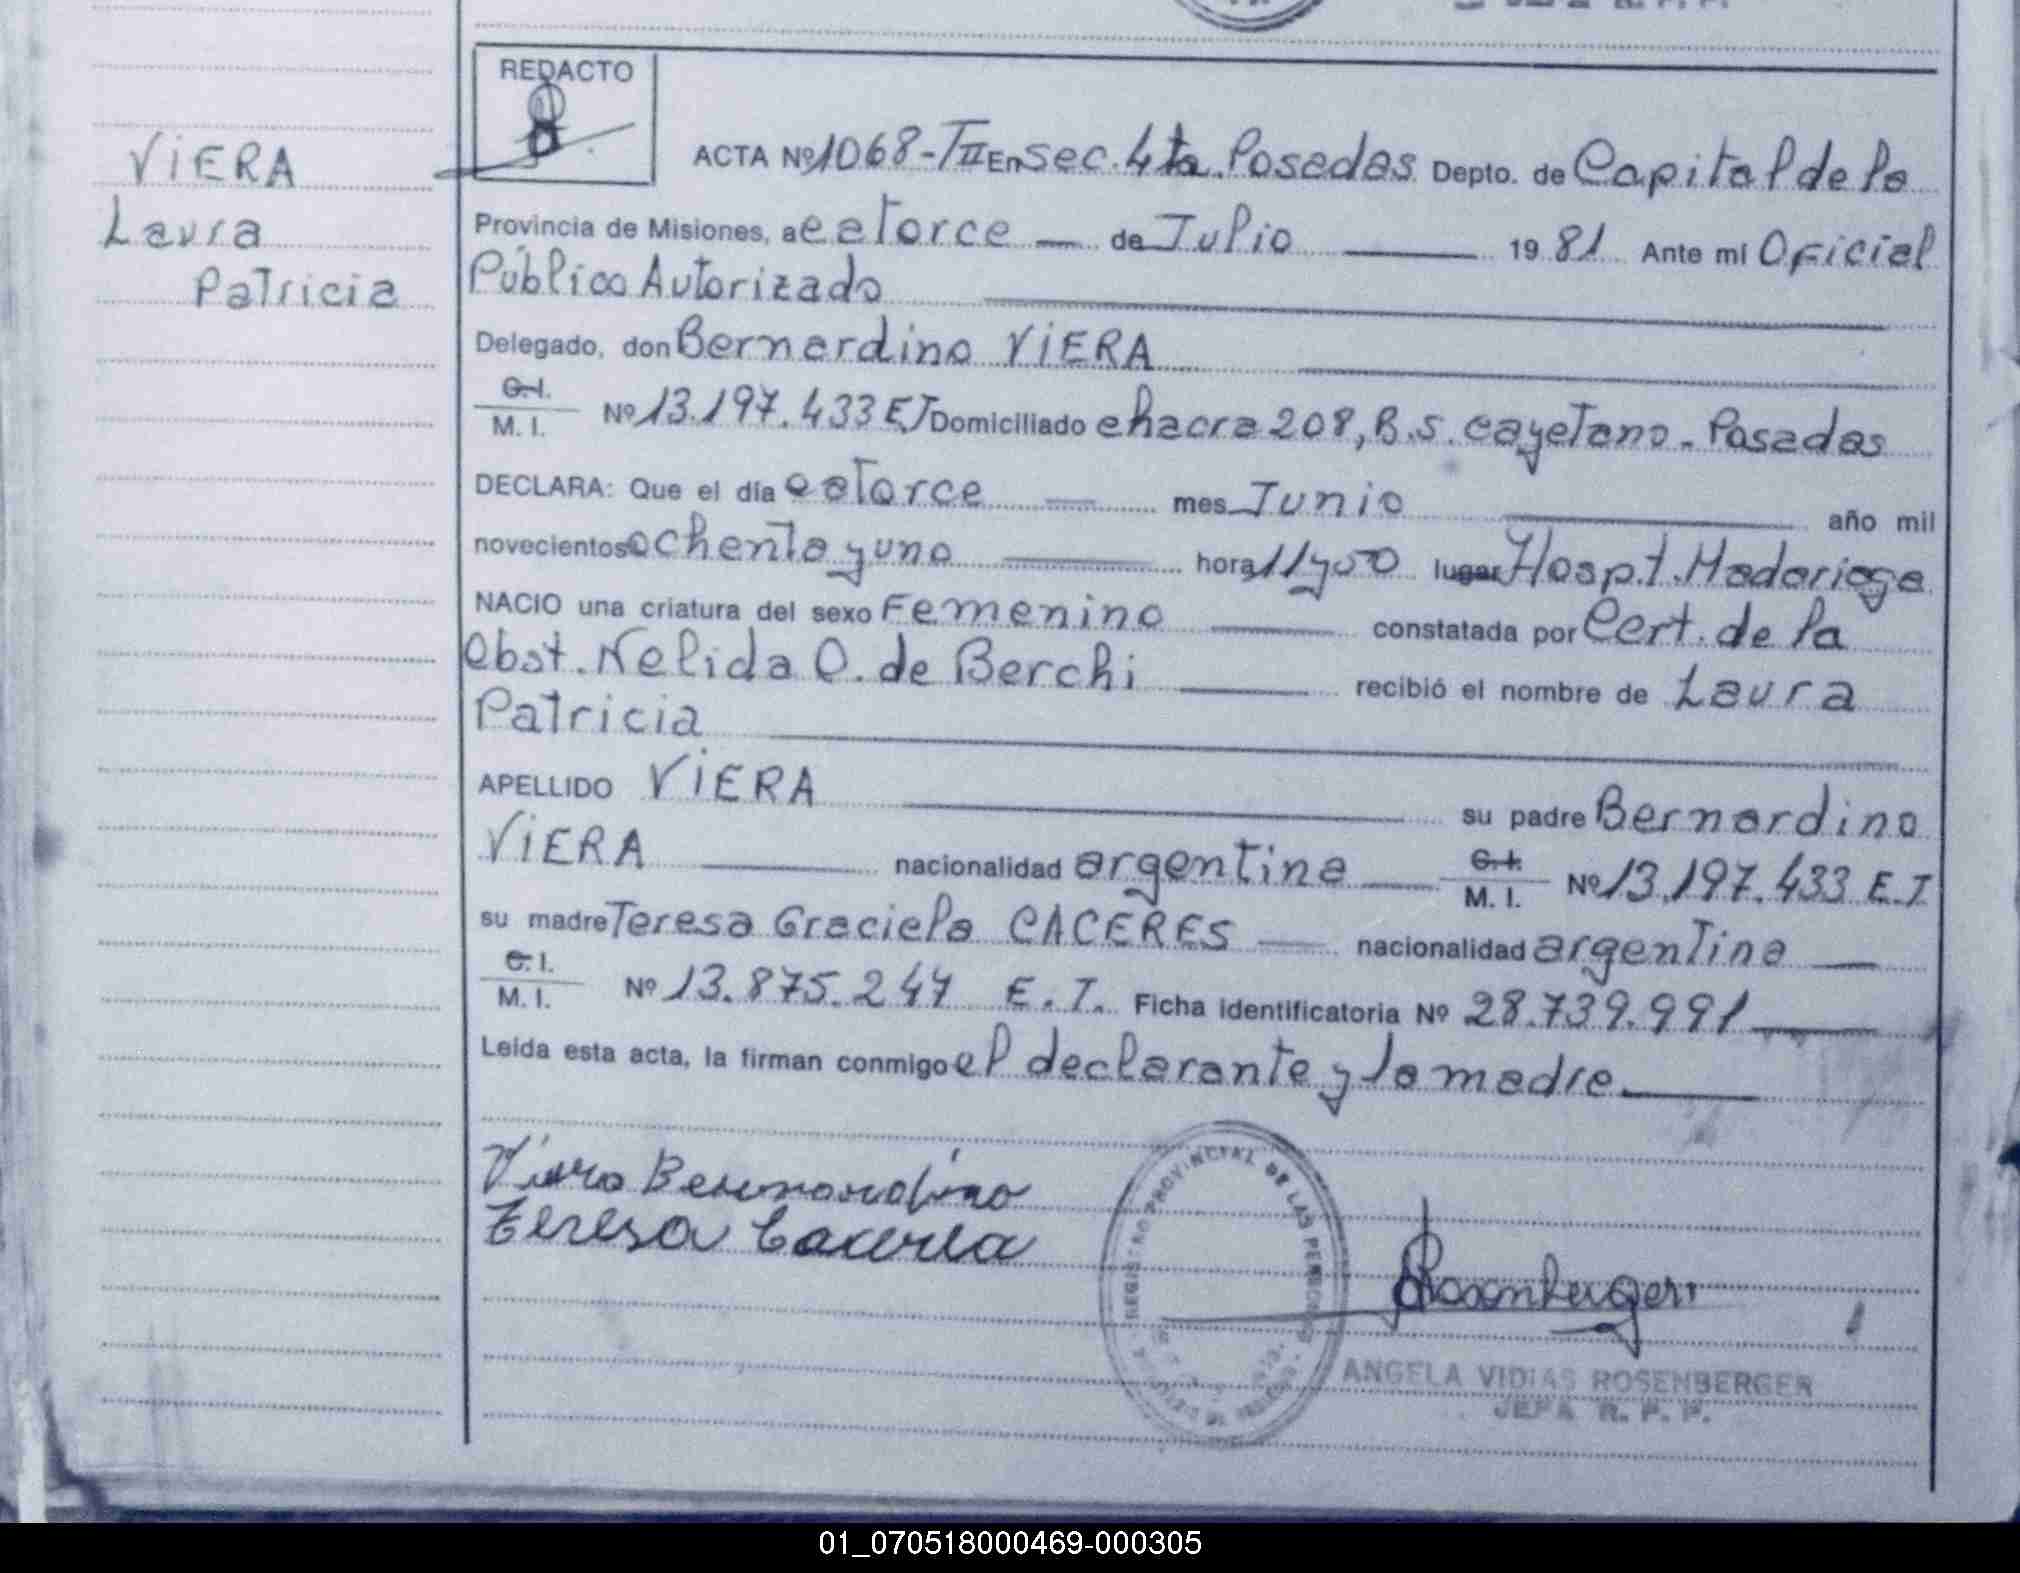 REDACTO
VIERA
Laura
Patricia
ACTA Nº 1068-TII En sec. 4ta. Posadas Depto. de Capital de la
Provincia de Misiones, a catorce — de Julio — 19 81 Ante mi Oficial
Público Autorizado
Delegado, don Bernardino VIERA
C.I.
M. I. Nº 13.197.433 E.T Domiciliado chacra 208, B. S. Cayetano - Posadas
DECLARA: Que el día catorce — mes Junio — año mil
novecientos ochenta y uno — hora 11 y 50 lugar Hospt. Madariaga
NACIO una criatura del sexo Femenino — constatada por Cert. de la
Obst. Nelida O. de Berchi — recibió el nombre de Laura
Patricia
APELLIDO VIERA — su padre Bernardino
VIERA — nacionalidad argentina — C.I.
M. I. Nº 13.197.433 E.T
su madre Teresa Graciela CACERES — nacionalidad argentina —
C.I.
M. I. Nº 13.875.247 E.T. Ficha identificatoria Nº 28.739.991 —
Leida esta acta, la firman conmigo el declarante y la madre.
Viera Bernardino
Teresa
REGISTRO PROVINCIAL DE LAS PERSONAS
Rosenberger
ANGELA VIDIAS ROSENBERGER
JEFA R. P. P.
01_070518000469-000305